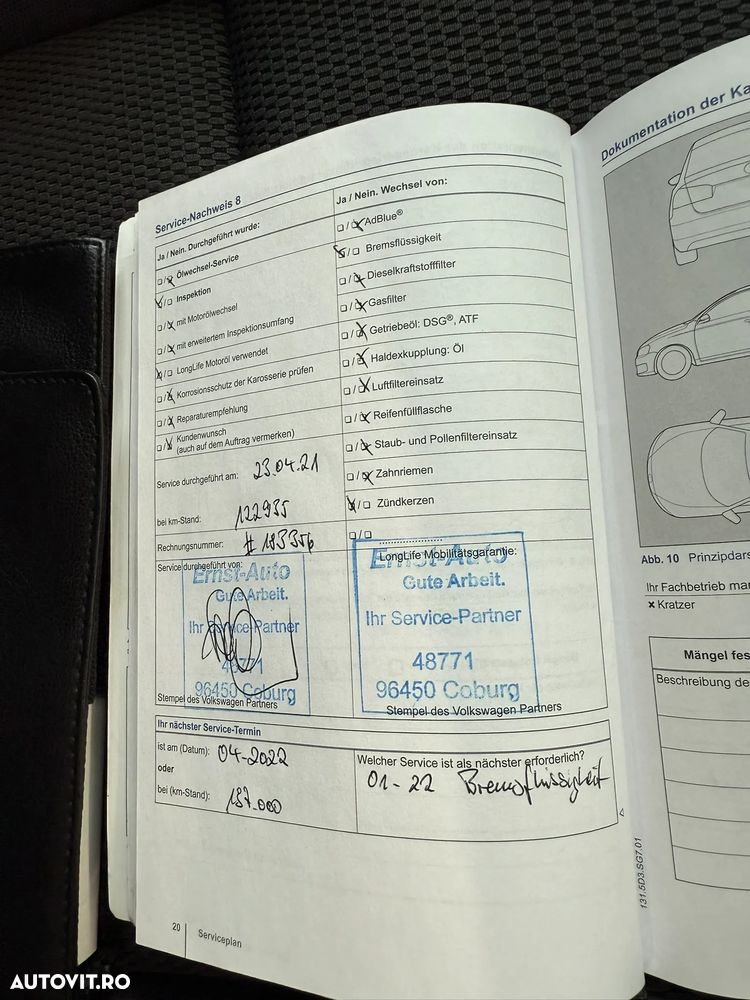 Service-Nachweis 8
Ja / Nein. Durchgeführt wurde:
Ölwechsel-Service
Inspektion
mit Motorölwechsel
mit erweitertem Inspektionsumfang
LongLife Motoröl verwendet
Korrosionsschutz der Karosserie prüfen
Reparaturempfehlung
Kundenwunsch
(auch auf dem Auftrag vermerken)
Service durchgeführt am: 23.04.21
bei km-Stand: 122935
Rechnungsnummer:
Service durchgeführt von:
Ernst-Auto
Gute Arbeit.
Ihr Service-Partner
48771
96450 Coburg
Stempel des Volkswagen Partners
Ja / Nein. Wechsel von:
AdBlue®
Bremsflüssigkeit
Dieselkraftstofffilter
Gasfilter
Getriebeöl: DSG®, ATF
Haldexkupplung: Öl
Luftfiltereinsatz
Reifenfüllflasche
Staub- und Pollenfiltereinsatz
Zahnriemen
Zündkerzen
LongLife Mobilitätsgarantie:
Ernst-Auto
Gute Arbeit.
Ihr Service-Partner
48771
96450 Coburg
Stempel des Volkswagen Partners
Ihr nächster Service-Termin
ist am (Datum): 04-2022
oder
bei (km-Stand): 137.000
Welcher Service ist als nächster erforderlich?
01-22 Bremsflüssigkeit
20 Serviceplan
Dokumentation der Ka
Abb. 10 Prinzipdars
Ihr Fachbetrieb ma
× Kratzer
Mängel fes
Beschreibung de
131.5D3.SG7.01
AUTOVIT.RO